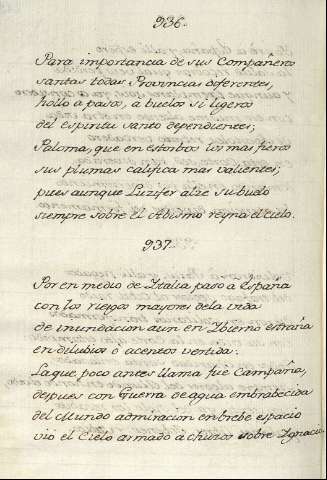 936.
Para importancia de sus Compañeros
santas todas Provincias diferentes,
hollo a pasos, a buelos si ligeros
del espiritu santo dependientes;
Paloma, que en estorbos los mas fieros
sus plumas califica mas valientes;
pues aunque Luzifer alze su buelo
siempre sobre el Abismo reyna el cielo.
937.
Por en medio de Italia, paso a España
con los riesgos mayores de la vida
de inundacion aun en Ybierno estraña
en dilubios o acentos vertida.
La que poco antes llama fue Campaña,
despues con Guerra de agua embrabecida
del Mundo admiracion en brebe espacio
vio el Cielo armado a chuzos sobre Ignacio.